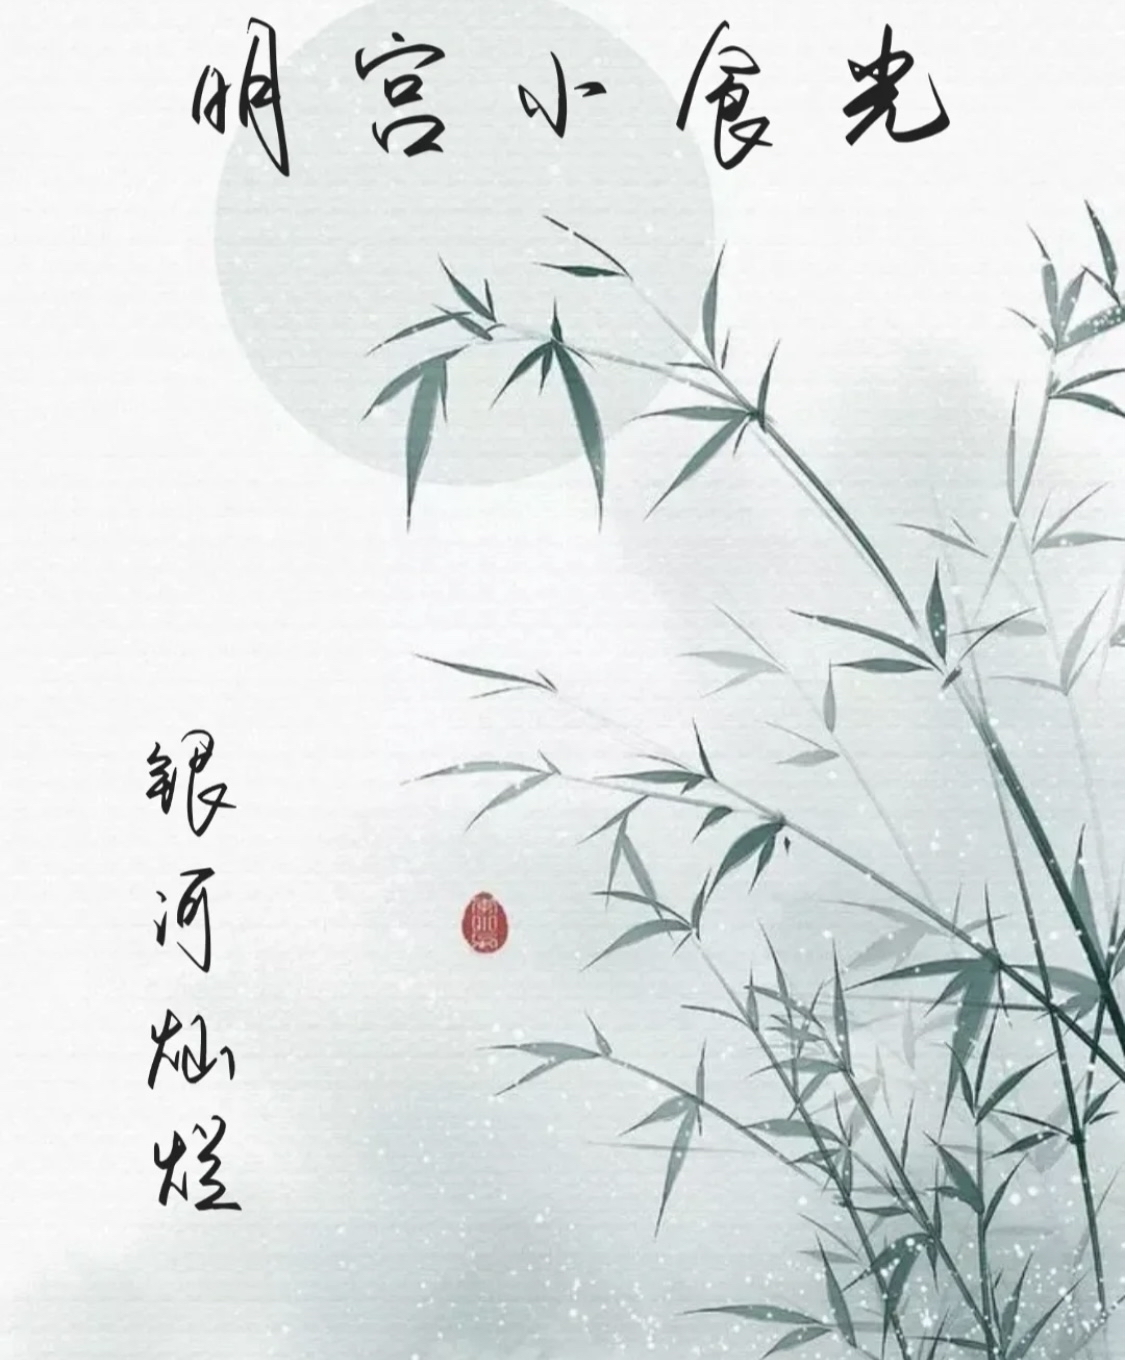 明宫小食光
银河灿烂